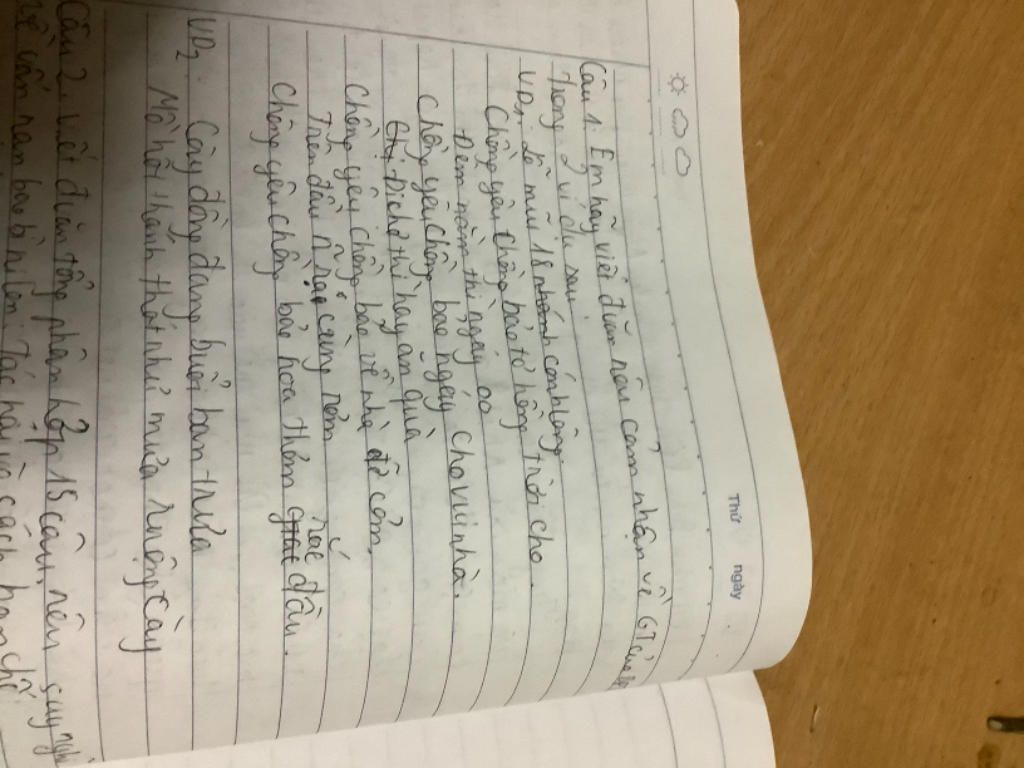 Thứ ngày
Câu 1: Em hãy viết đoạn nêu cảm nhận về GT của
Trong 2 ví dụ sau:
VD1. Lỗ mũi 18 cánh lông
Chồng yêu chồng bảo tơ hồng trời cho.
Đêm nằm thì ngáy o o
Chồng yêu chồng bảo ngáy cho vui nhà.
Đi chợ thì hay ăn quà
Chồng yêu chồng bảo về nhà đỡ cơm.
Trên đầu n~ rác cùng rơm
Chồng yêu chồng bảo hoa thơm rắc đầu.
VD2. Cày đồng đang buổi ban trưa
Mồ hôi thánh thót như mưa ruộng cày
Câu 2. viết đoạn tổng phân hợp 15 câu nêu suy nghĩ
về vấn nạn tác hại và cách hạn chế